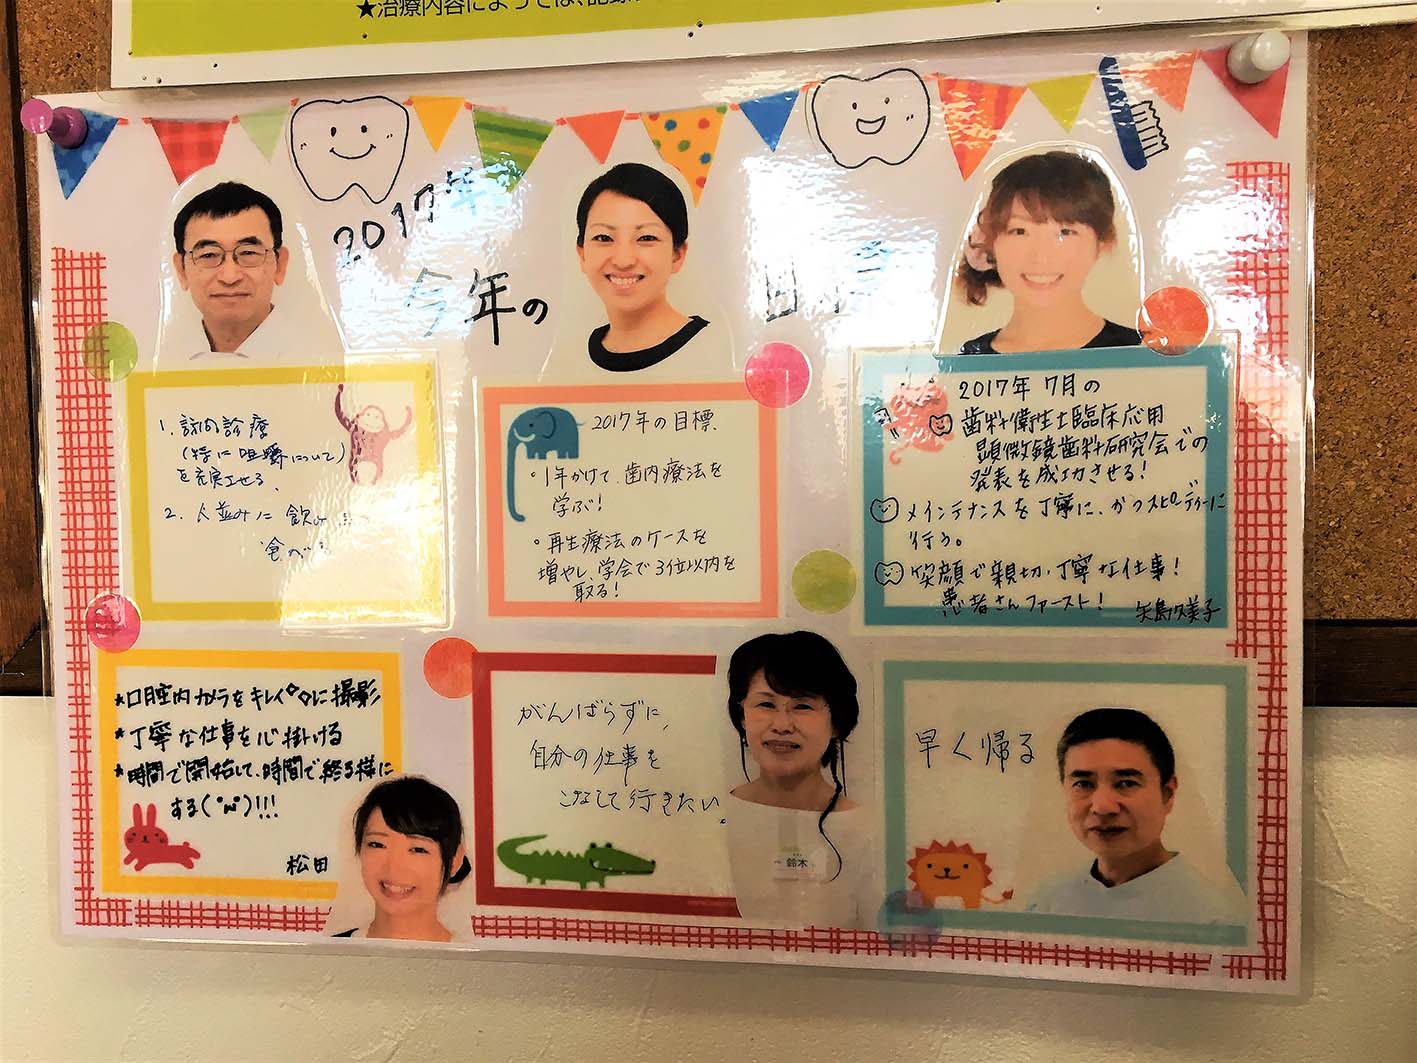 ★治療内容によっては、記録
2017年
今年の
目
1. 訪問診療
(特に咀嚼について)
を充実させる、
2. 人並みに 飲み
食べ
2017年の目標、
・1年かけて、歯内療法を
学ぶ!
・再生療法のケースを
増やし、学会で3位以内を
取る!
2017年 7月の
歯科衛生士臨床応用
顕微鏡歯科研究会での
発表を成功させる!
メインテナンスを丁寧に、かつスピーディーに
行う。
笑顔で親切、丁寧な仕事!
患者さんファースト!
矢島久美子
★口腔内カメラをキレイに撮影
★丁寧な仕事を心掛ける
★時間で開始して、時間で終る様に
する(°ω°)!!!
松田
がんばらずに、
自分の仕事を
こなして行きたい。
鈴木
早く帰る